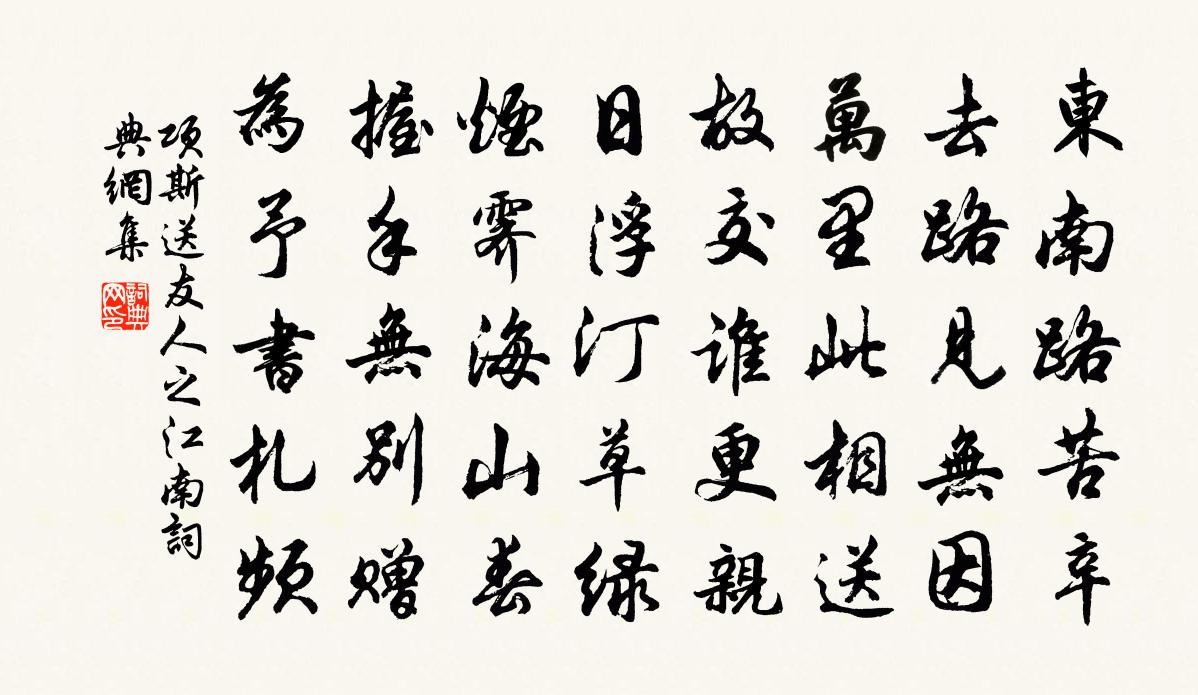 東南路苦辛
去路見無因
萬里此相送
故交誰更親
日浮汀草緑
煙霽海山春
握手無別贈
為予書札頻
項斯送友人之江南詞
典網集
詞典網印